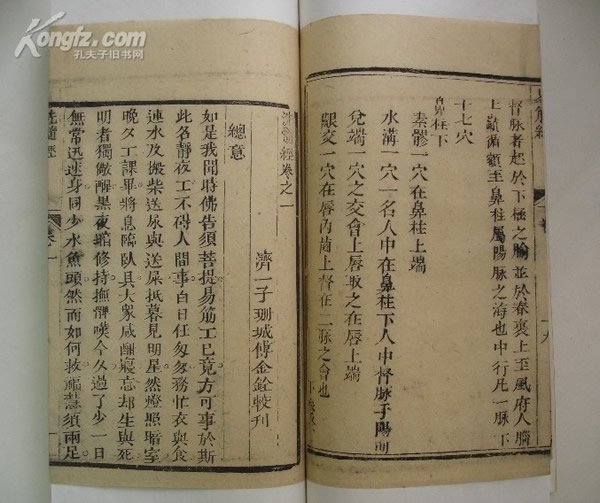 Kongfz.com
孔夫子旧书网
督脉者起於下極之腧並於脊裏上至風府入腦
上巔循額至鼻柱屬陽脉之海也中行凡一脉下
十七穴
鼻柱下
素髎一穴在鼻柱上端
水溝一穴一名人中在鼻柱下人中督脉手陽明
兌端一穴之交會上唇取之在唇上端
齦交一穴在唇内齒上督任二脉之會也
洗髓經卷之一
濟一子珊城傅金銓較刊
總意
如是我聞時佛告須菩提易筋工已竟方可事於斯
此名靜夜工不碍人間事白日任匆匆務忙衣與食
運水及搬柴送尿與送屎抵暮見明星然燈照暗室
晚夕工課畢將息臨臥具大衆咸酣寢忘却生與死
明者獨儆醒黑夜暗修持撫髀嘆今夕過了少一日
無常迅速身同少水魚頭然而如何救福慧須兩足
洗髓經
卷一
一